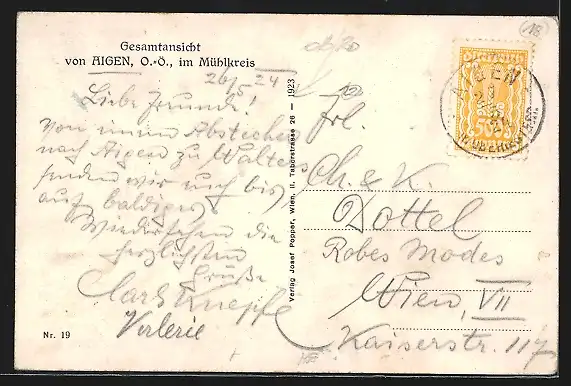 Gesamtansicht
von AIGEN, O.-Ö., im Mühlkreis
26/5 24
Liebe Freunde!
Von einem Abstecher
nach Aigen zu Walters
senden wir euch bis
auf baldiges
Wiedersehen die
herzlichsten
Grüße
Valerie
Nr. 19
Verlag Josef Popper, Wien, II. Taborstrasse 26 — 1923
AIGEN
Frl.
Ch. & K.
Dottel
Robes Modes
Wien, VII
Kaiserstr. 117